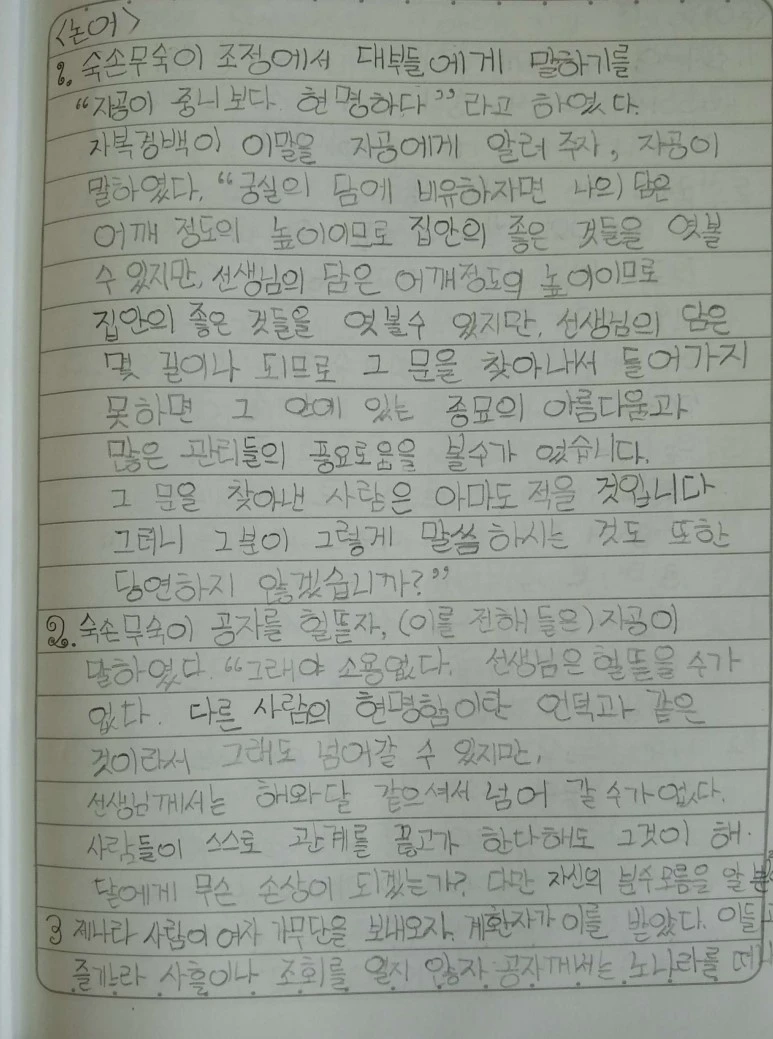 <논어>
1. 숙손무숙이 조정에서 대부들에게 말하기를
“자공이 중니보다 현명하다”라고 하였다.
자복경백이 이말을 자공에게 알려 주자, 자공이
말하였다. “궁실의 담에 비유하자면 나의 담은
어깨 정도의 높이이므로 집안의 좋은 것들을 엿볼
수 있지만, 선생님의 담은 어깨정도의 높이이므로
집안의 좋은 것들을 엿볼수 있지만, 선생님의 담은
몇 길이나 되므로 그 문을 찾아나서 들어가지
못하면 그 안에 있는 종묘의 아름다움과
많은 관리들의 풍요로움을 볼수가 없습니다.
그 문을 찾아낸 사람은 아마도 적을 것입니다
그러니 그분이 그렇게 말씀하시는 것도 또한
당연하지 않겠습니까?”
2. 숙손무숙이 공자를 헐뜯자, (이를 전해 들은)자공이
말하였다. “그래야 소용없다. 선생님은 헐뜯을 수가
없다. 다른 사람의 현명함이란 언덕과 같은
것이라서 그래도 넘어갈 수 있지만,
선생님께서는 해와달 같으셔서 넘어 갈 수가 없다.
사람들이 스스로 관계를 끊고가 한다해도 그것이 해·
달에게 무슨 손상이 되겠는가? 다만 자신의 분수모름을 알
3 제나라 사람이 여자 가무단을 보내오자, 계환자가 이를 받았다. 이들
즐기느라 사흘이나 조회를 열지 않자 공자께서는 노나라를